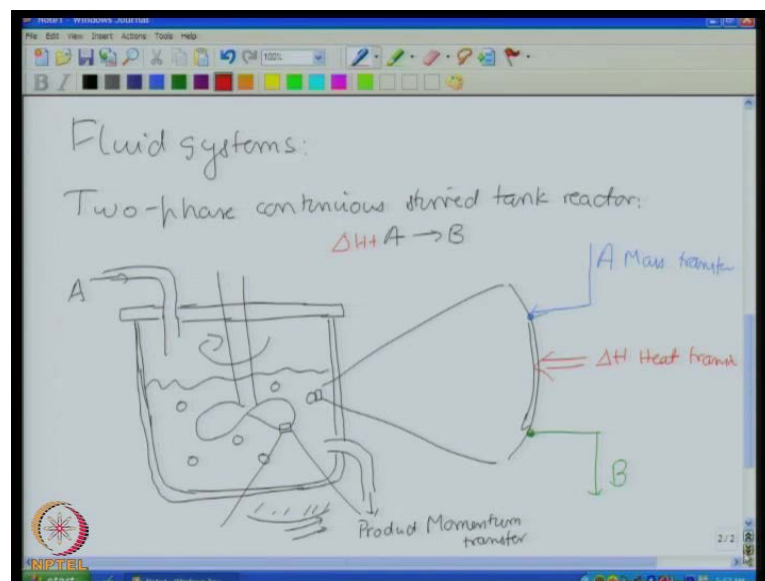 Note1 - Windows Journal
File Edit View Insert Actions Tools Help
100%
B I
Fluid systems:
Two-phase continuious stirred tank reactor:
ΔH+ A → B
A Mass transfer
A
ΔH Heat trans
B
Product Momentum
transfer
2/2
NPTEL
start